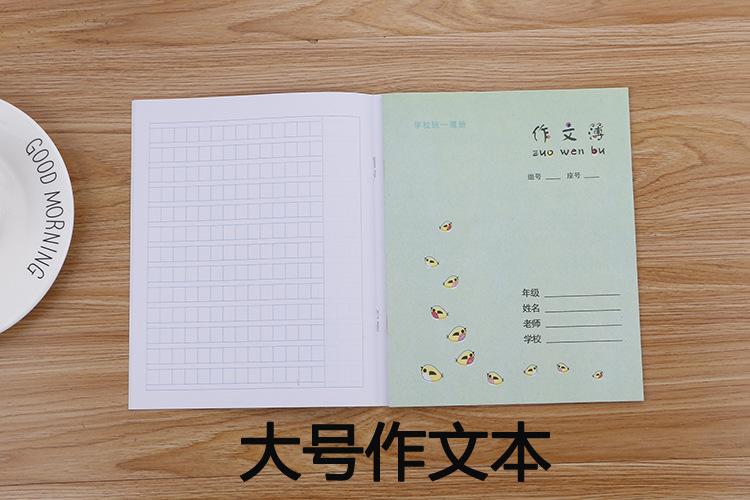 GOOD MORNING
学校统一簿册
作文簿
zuo wen bu
组号 座号
年级
姓名
老师
学校
大号作文本